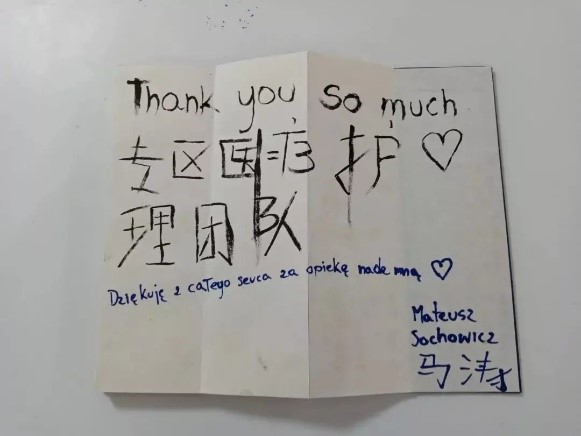 Thank you so much
专区医疗护♡
理团队
Dziękuję z całego serca za opiekę nade mną ♡
Mateusz
Sochowicz
马